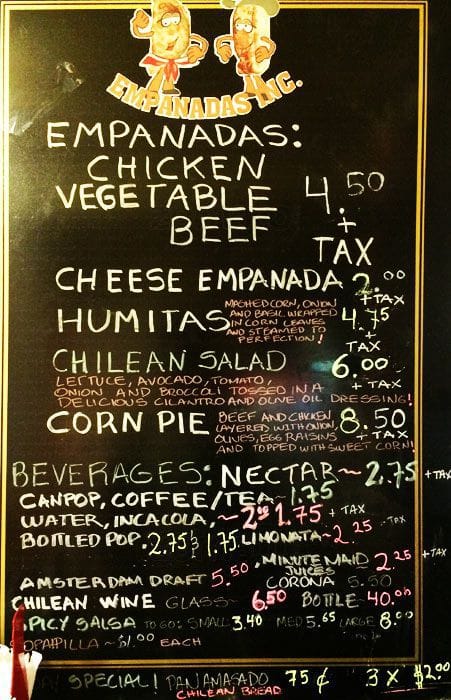 EMPANADAS INC.
EMPANADAS:
CHICKEN
VEGETABLE 4.50
BEEF +
TAX
CHEESE EMPANADA 2.00
+ TAX
HUMITAS MASHED CORN, ONION
AND BASIL WRAPPED
IN CORN LEAVES
AND STEAMED TO
PERFECTION! 4.75
+
TAX
CHILEAN SALAD 6.00
+ TAX
LETTUCE, AVOCADO, TOMATO,
ONION AND BROCCOLI TOSSED IN A
DELICIOUS CILANTRO AND OLIVE OIL DRESSING!
CORN PIE BEEF AND CHICKEN
LAYERED WITH ONION,
OLIVES, EGG RAISINS
AND TOPPED WITH SWEET CORN! 8.50
+ TAX
BEVERAGES: NECTAR~ 2.75 + TAX
CANPOP, COFFEE/TEA~ 1.75
WATER, INCA COLA,~ 1.75 + TAX
BOTTLED POP. 2.75 1.75. LIMONATA~ 2.25 + TAX
MINUTE MAID
JUICES 2.25 + TAX
AMSTERDAM DRAFT 5.50. CORONA 5.50
CHILEAN WINE GLASS~ 6.50 BOTTLE~ 40.00
SPICY SALSA TO GO: SMALL 3.40 MED 5.65 LARGE 8.00
SOPAIPILLA ~ $1.00 EACH
SPECIAL! PAN AMASADO 75¢ 3 X $2.00
CHILEAN BREAD